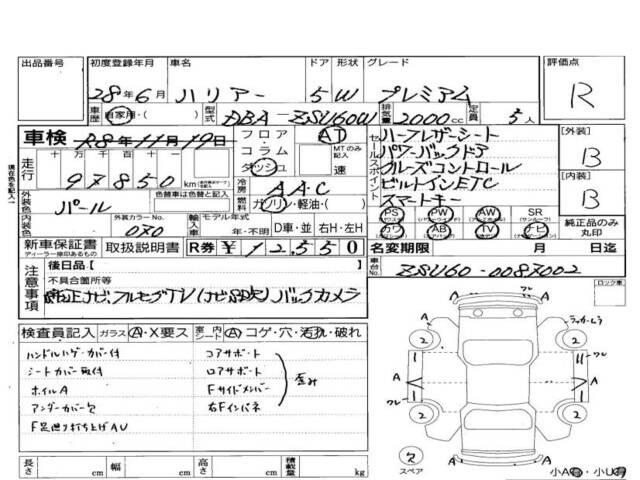 出品番号 初度登録年月 車名 ドア 形状 グレード 評価点
28年6月 ハリアー 5W プレミアム R
車歴 自家用・( ) 型式 DBA-ZSU60W 排気量 2000cc 定員 5人
車検 R8年11月19日 フロア・コラム・ダッシュ AT MTのみ記入 速
セールスポイント
ハーフレザーシート
パワーバックドア
クルーズコントロール
ビルトインETC
スマートキー
[外装] B
[内装] B
走行 十万 万 千 百 十 一
97850 km
冷房 AAC
外装色 パール 色替車は色替と記入
燃料 ガソリン・軽油・( )
内装色 外装カラーNo. 070 輸入車 モデル年式 年・不明 D車・並 右H・左H
PS PW AW SR (サンルーフ)
カワ AB TV ナビ
純正品のみ丸印
新車保証書 ディーラー捺印あるもの 取扱説明書 R券 ¥12,550 名変期限 月 日迄
現在色を記入
注意事項
後日品[ ]
不具合箇所等
純正ナビ・フルセグTV バックカメラ
車台No. ZSU60-0087002
ロック車
検査員記入 ガラス A・X要ス 室内シート A コゲ・穴・汚れ・破れ
ハンドルハゲ・カバー付 コアサポート
シートカバー取付 ロアサポート
ホイルA Fサイドメンバー
アンダーカバー欠 右Fインパネ
歪み
F足廻り打ち上げAU
2 2 2 2
A A A A A A
ワレ ワレ
スペア
長さ cm 幅 cm 高さ cm 積載量 kg
小A・小U